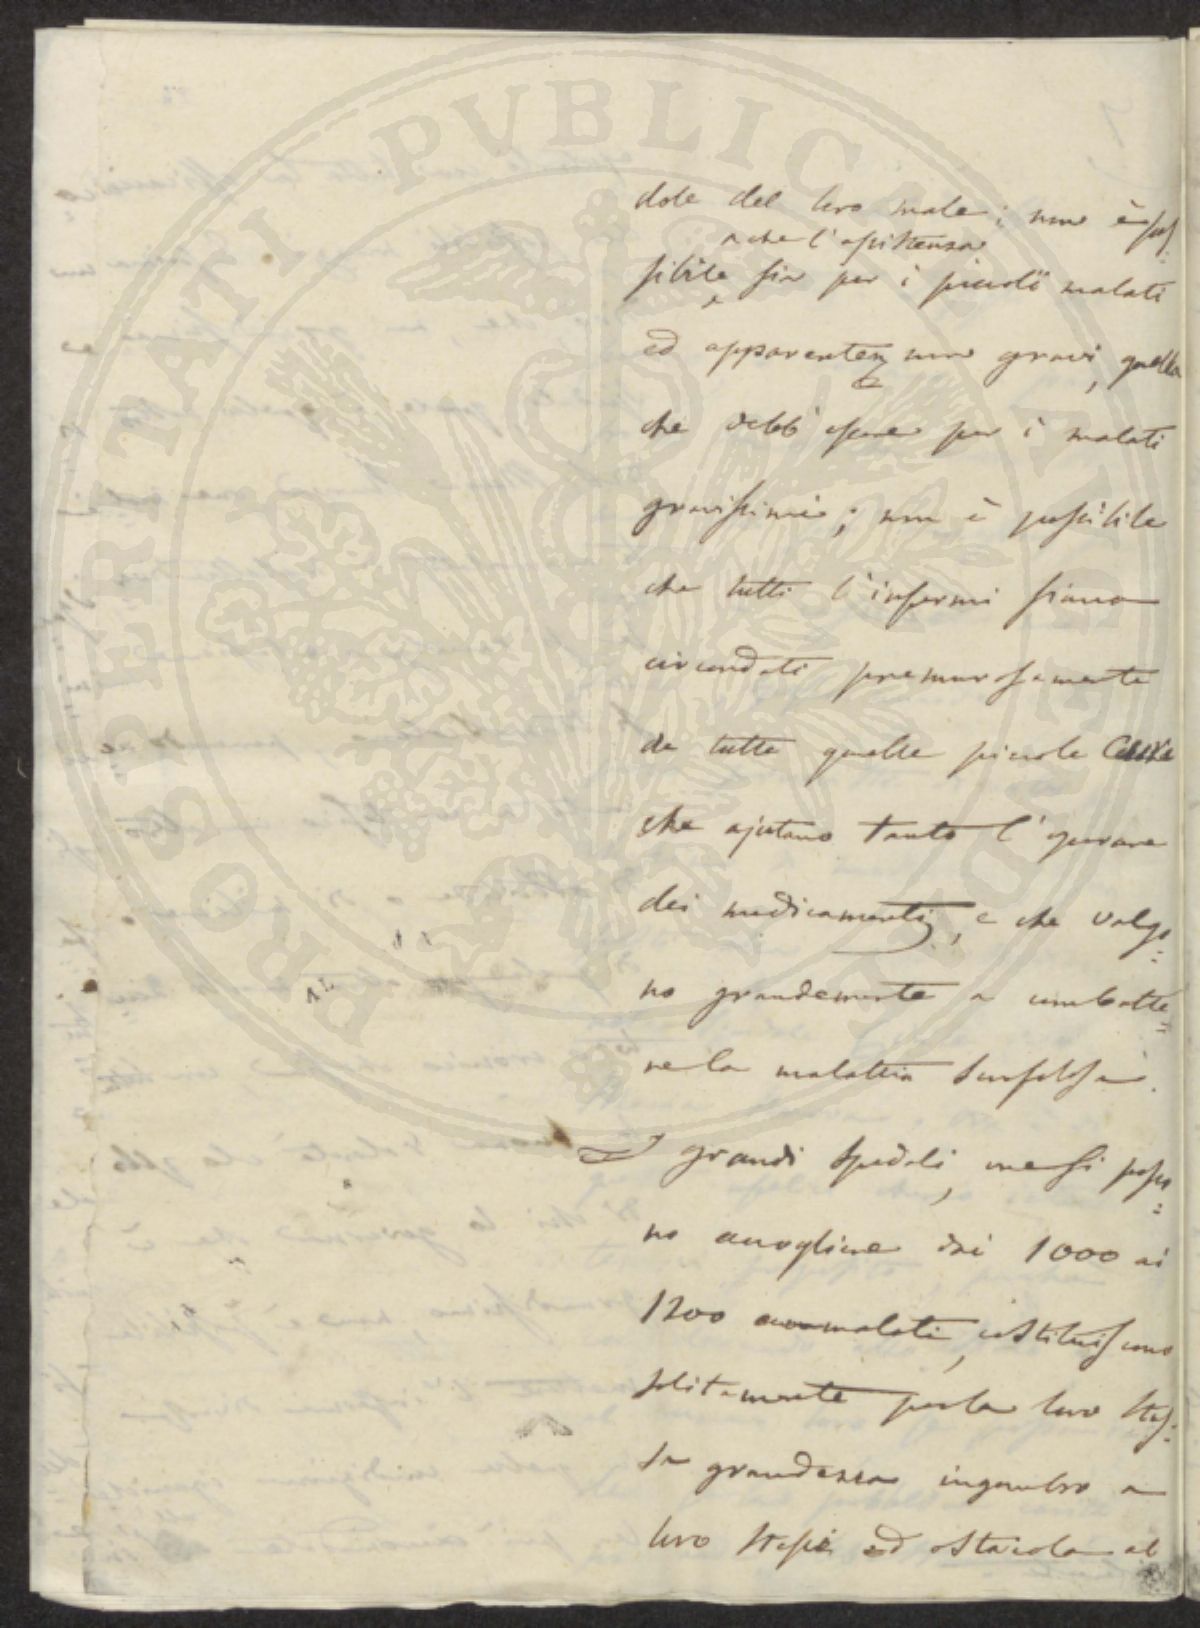 PROSPERITATI PUBLICAE AUGENDAE
dole del loro male; non è pos=
a che l'assistenza
sibile sia per i piccoli malati
ed apparentem non gravi, quella
che debb'essere per i malati
gravissimi; non è possibile
che tutti l'infermi siano
circondati premurosamente
da tutte quelle piccole Cure
che ajutano tanto l'operare
dei medicamenti, e che valgo=
no grandemente a combatte=
re la malattia
I grandi Spedali, ove si posso=
no accogliere dai 1000 ai
1200 malati, costituiscono
solitamente per la loro stes=
sa grandezza ingombro a
loro stessi ed ostacolo al